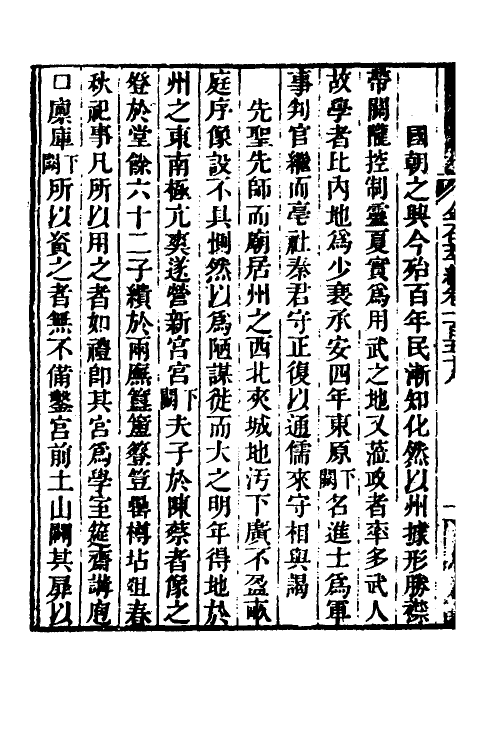 金石萃編卷一百五十八
國朝之興今殆百年民漸知化然以州據形勝襟
帶關隴控制靈夏實爲用武之地又蒞政者率多武人
故學者比内地爲少裒承安四年東原下闕名進士爲軍
事判官繼而亳社秦君守正復以通儒來守相與謁
先聖先師而廟居州之西北夾城地汚下廣不盈畝
庭序像設不具惻然以爲陋謀徙而大之明年得地於
州之東南極亢爽遂營新宮宮下闕夫子於陳蔡者像之
於堂餘六十二子繢於兩廡簠簋簦豆罍樽坫俎春
秋祀事凡所以用之者如禮卽其宮爲學至筵齋講庖
口廩庫下闕所以資之者無不備鑿宮前土山闢其扉以